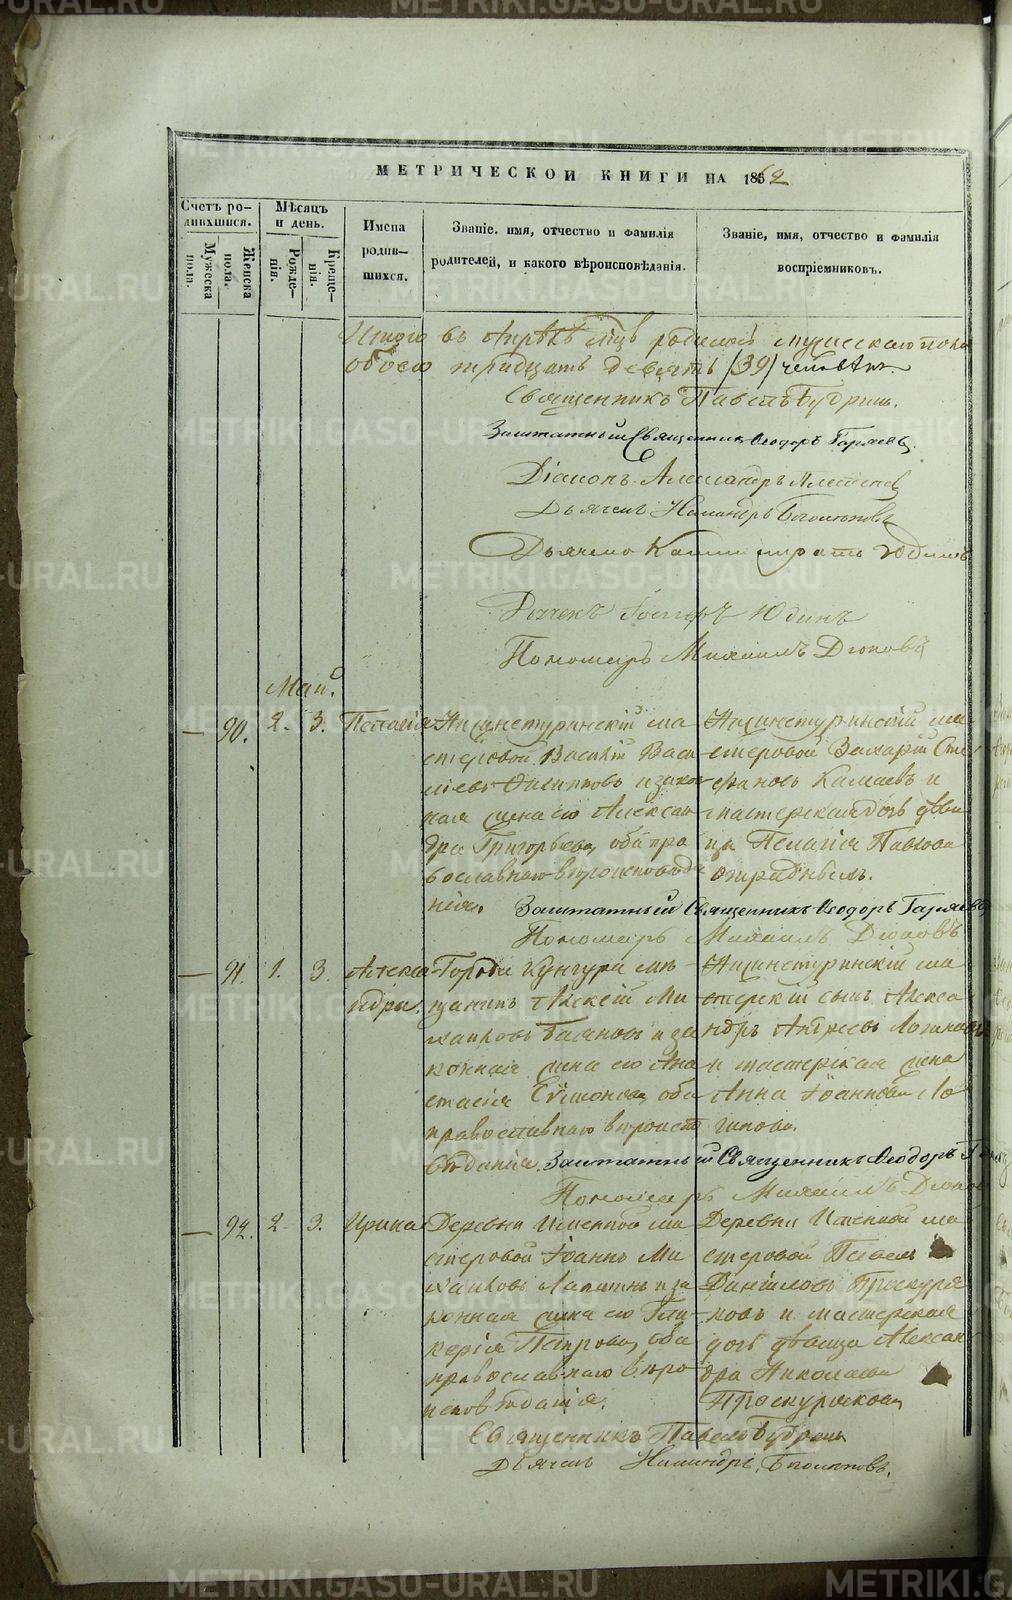 МЕТРИЧЕСКОЙ КНИГИ НА 1862
Счетъ ро-
дившихся.
Мужеска
пола.
Женска
пола.
Мѣсяцъ
и день.
Рожде-
нія.
Креще-
нія.
Имена
родив-
шихся.
Званіе, имя, отчество и фамилія
родителей, и какого вѣроисповѣданія.
Званіе, имя, отчество и фамилія
воспріемниковъ.
Итого въ Апрѣлѣ м҃цѣ родилось мужескаго пола
обоего тридцать девять /39/ человѣкъ.
Священникъ Павелъ Будринъ.
Заштатный Священникъ Ѳеодоръ Гаряевъ.
Діаконъ Александръ
Дьячекъ Никандръ Богомоловъ
Дьячекъ Юдинъ
Дьячекъ Юдинъ
Пономарь Михаилъ Дюковъ
Май.
— 90. 2. 3. Пелагія
Нижнетуринскій ма-
стеровой Василій Васи
льевъ Филиповъ и закон
ная жена его Алексан
дра Григорьева, оба пра
вославнаго вѣроисповѣда
нія.
Нижнетуринскій ма-
стеровой Захарій Сте
фановъ Камаевъ и
мастерская дочь дѣви
ца Пелагія Павлова
Заштатный Священникъ Ѳеодоръ Гаряевъ
Пономарь Михаилъ Дюковъ
— 91. 1. 3. Алекса
ндра.
Города Кунгура мѣ-
щанинъ Алексѣй Ми
хайловъ и за
конная жена его Ана
стасія Симонова, оба
православнаго вѣроисп
вѣданія.
Нижнетуринскій ма
стерскій сынъ Алекса
ндръ Андреевъ Логиновъ
и мастерская жена
Анна Іоаннова Ло
гинова.
Заштатный Священникъ Ѳеодоръ
Пономарь Михаилъ Дюковъ
— 92. 2. 3. Ирина
Деревни Именной ма
стеровой Іоаннъ Ми
хайловъ Лапитнъ и за
конная жена его Гли
керія Петрова, оба
православнаго вѣро
исповѣданія.
Деревни Именной ма
стеровой Павелъ
Даніиловъ Проскуря
ковъ и мастерская
дочь дѣвица Алексан
дра Николаева
Проскурякова
Священникъ Павелъ Будринъ
Дьячекъ Никандръ Богомоловъ.
METRIKI.GASO-URAL.RU